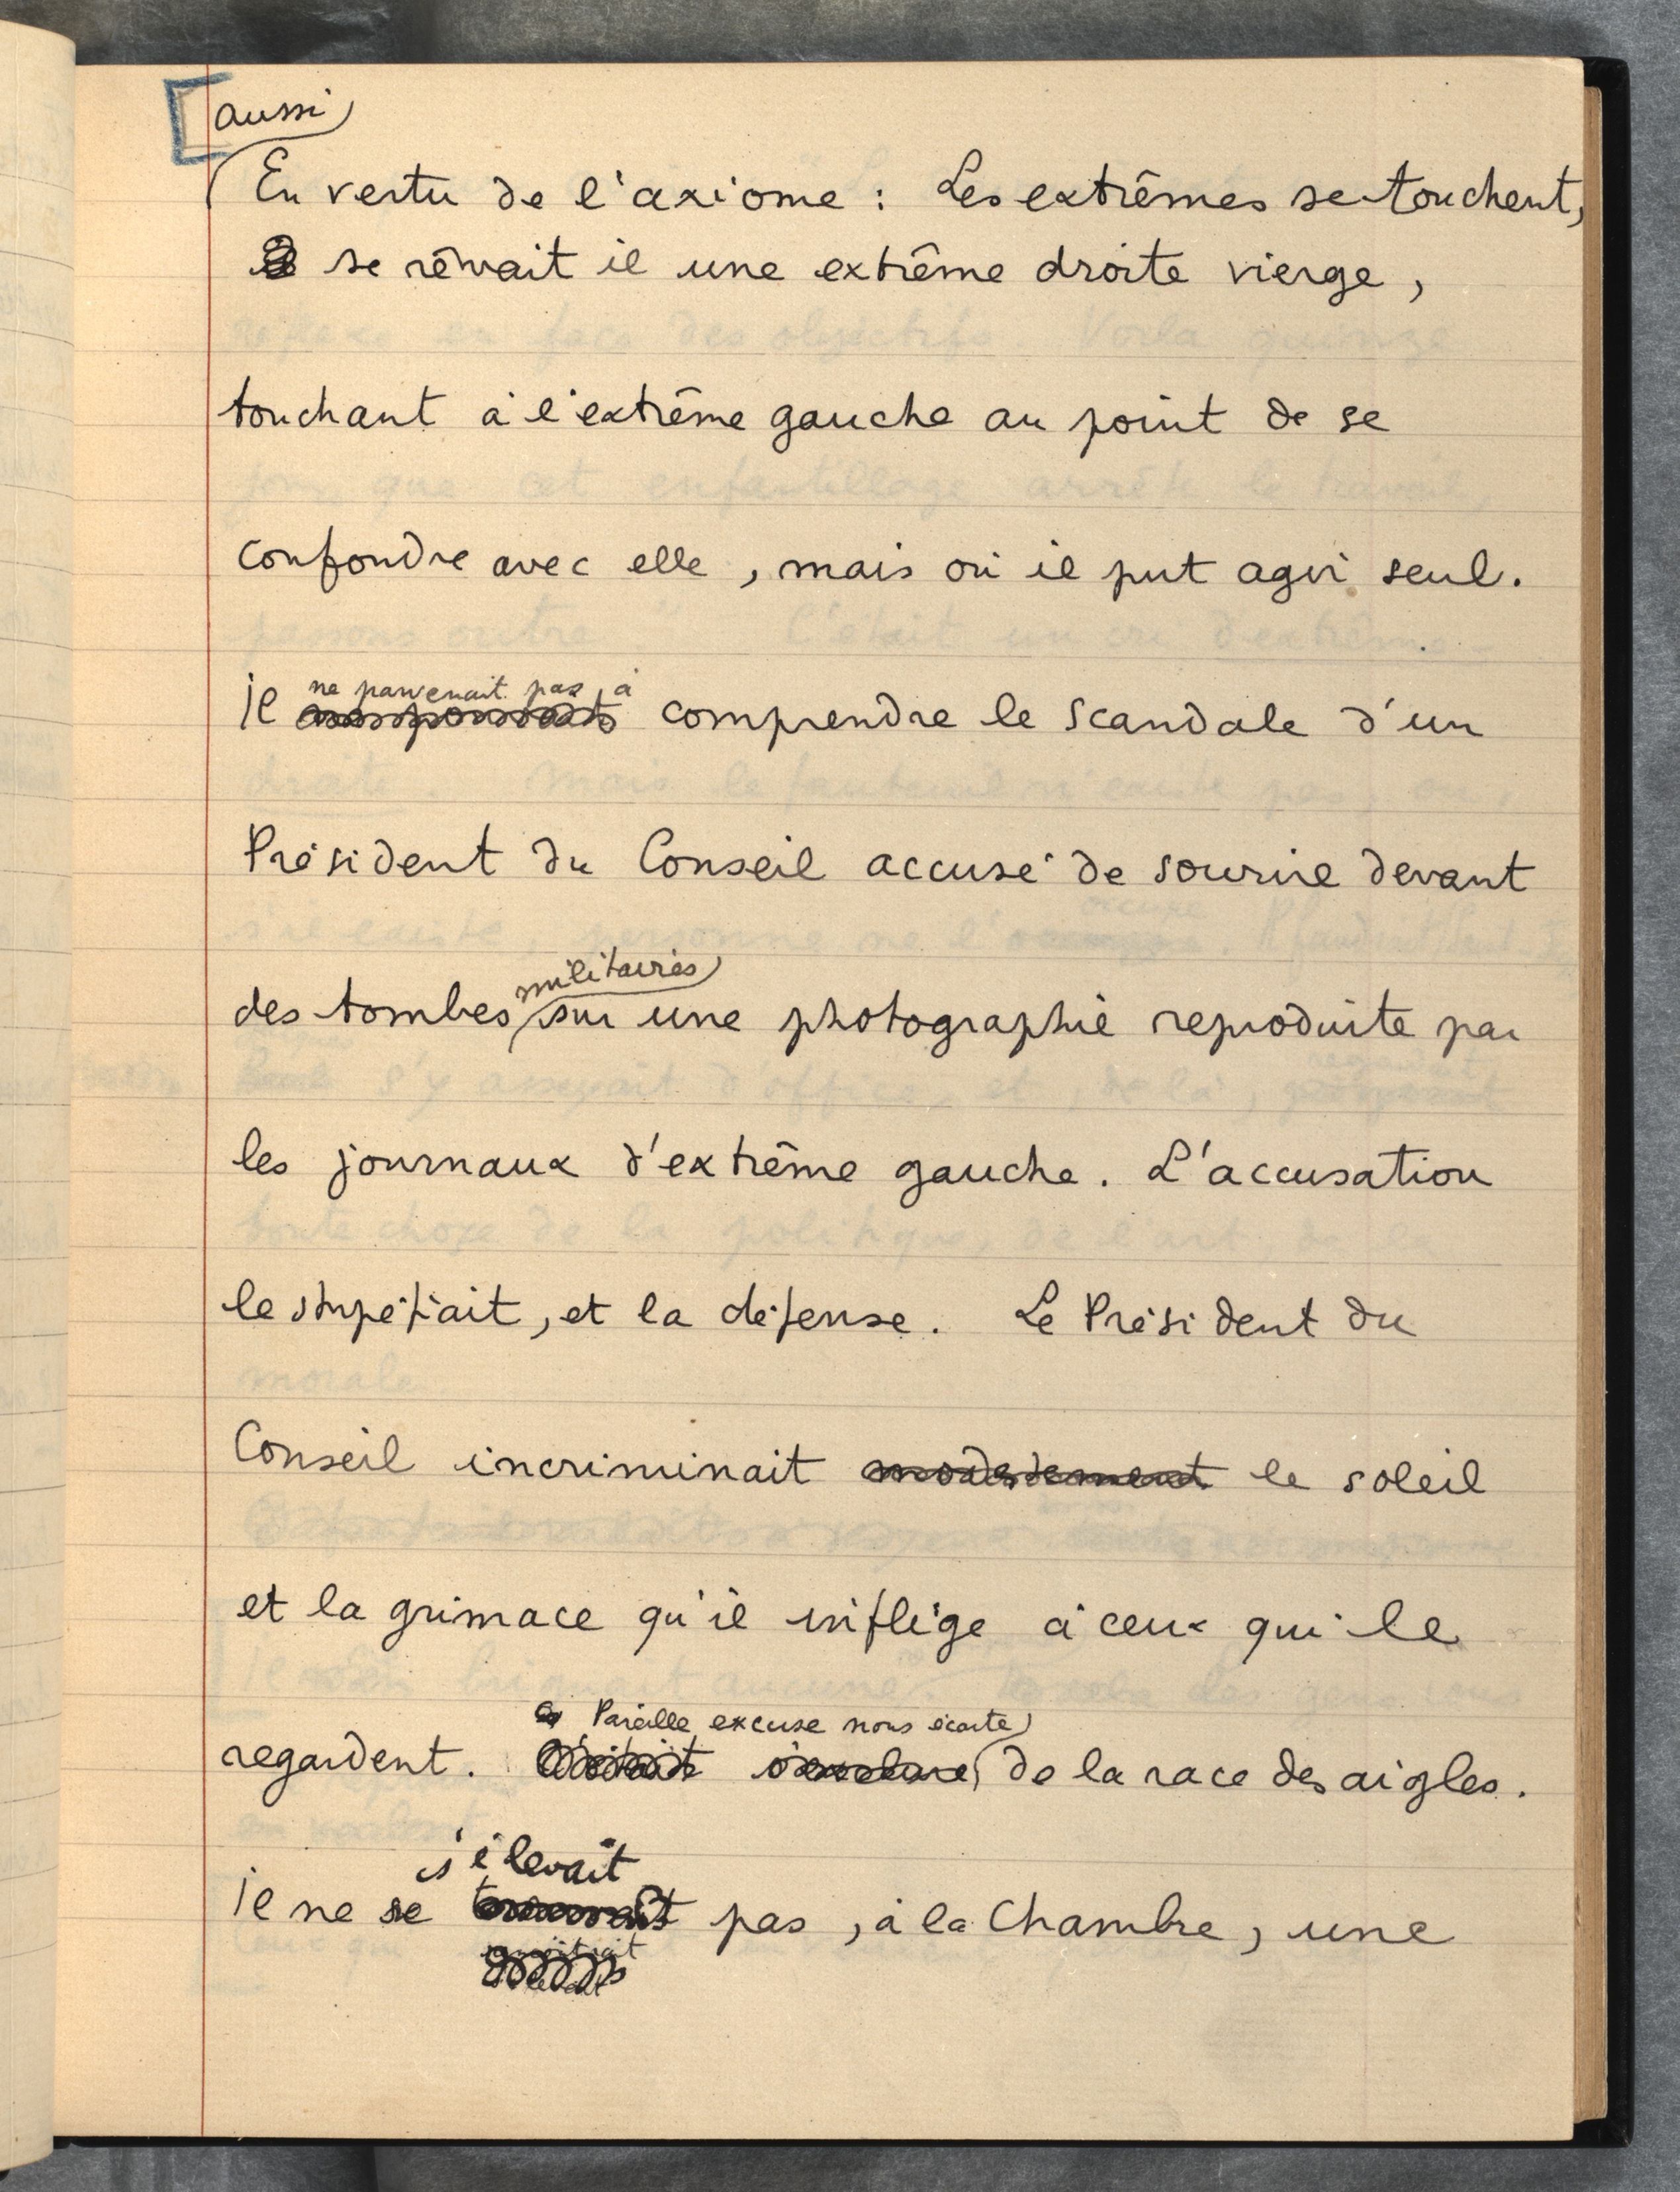 aussi
En vertu de l'axiome : Les extrêmes se touchent,
se rêvait il une extrême droite vierge,
touchant à l'extrême gauche au point de se
confondre avec elle, mais où il put agir seul.
ne parvenait pas à
il comprendre le scandale d'un
Président du Conseil accusé de sourire devant
militaires
des tombes sur une photographie reproduite par
les journaux d'extrême gauche. L'accusation
le stupéfiait, et la défense. Le Président du
Conseil incriminait modestement le soleil
et la grimace qu'il inflige à ceux qui le
Pareille excuse nous écarte
regardent. de la race des aigles.
s'élevait
il ne se pas, à la Chambre, une